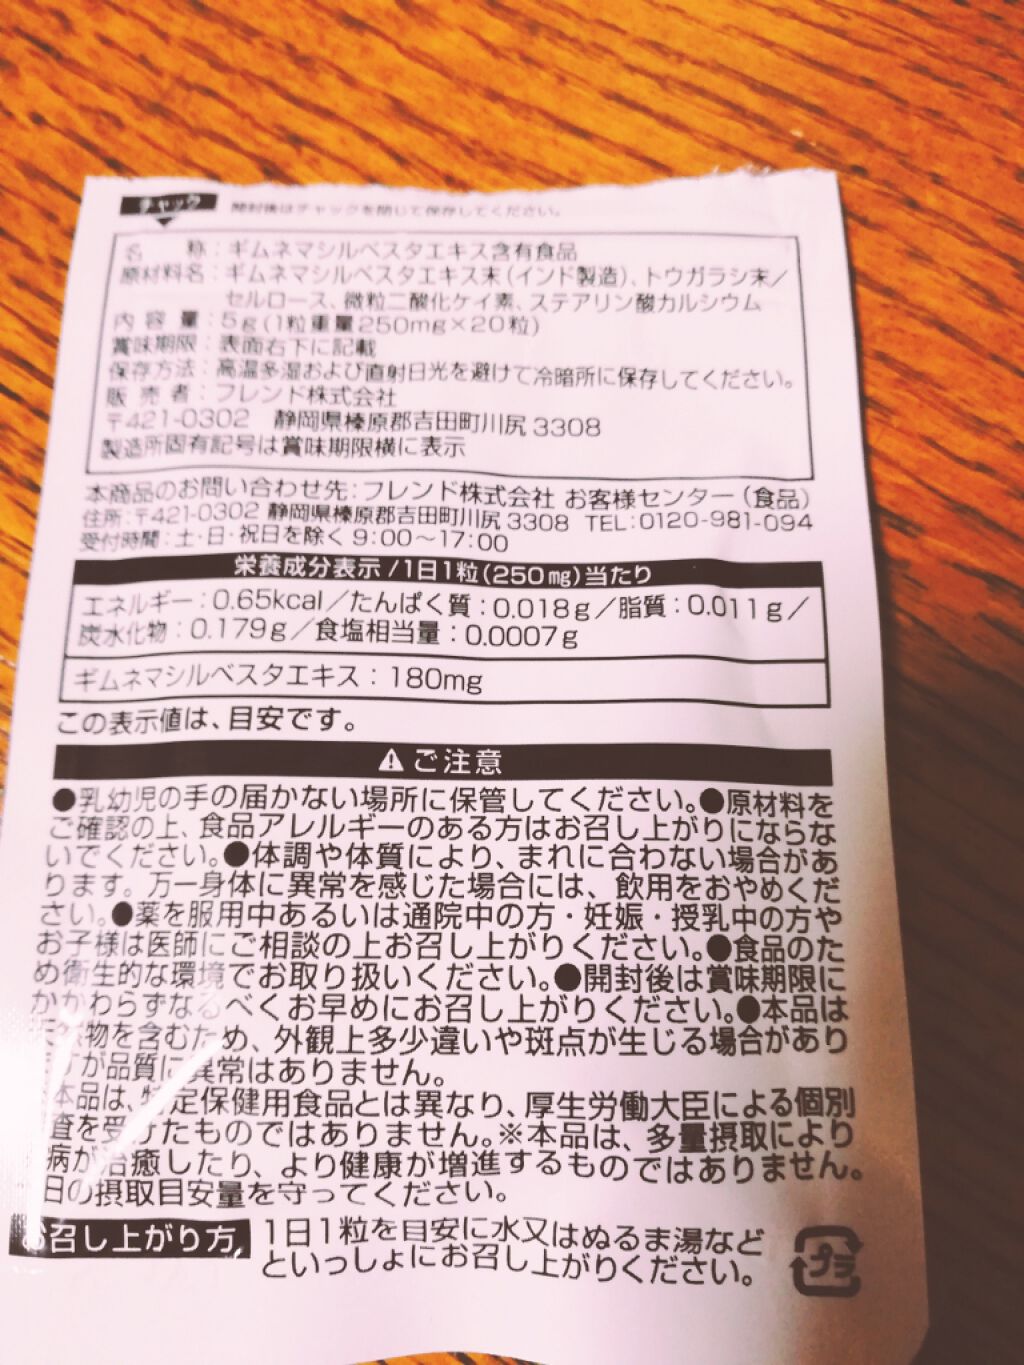 チャック 開封後はチャックを閉じて保存してください。
名　　称：ギムネマシルベスタエキス含有食品
原材料名：ギムネマシルベスタエキス末（インド製造）、トウガラシ末／
セルロース、微粒二酸化ケイ素、ステアリン酸カルシウム
内 容 量：5g（1粒重量250mg×20粒）
賞味期限：表面右下に記載
保存方法：高温多湿および直射日光を避けて冷暗所に保存してください。
販 売 者：フレンド株式会社
〒421-0302　静岡県榛原郡吉田町川尻3308
製造所固有記号は賞味期限横に表示
本商品のお問い合わせ先：フレンド株式会社 お客様センター（食品）
住所：〒421-0302 静岡県榛原郡吉田町川尻3308 TEL：0120-981-094
受付時間：土・日・祝日を除く9：00～17：00
栄養成分表示／1日1粒（250㎎）当たり
エネルギー：0.65kcal／たんぱく質：0.018g／脂質：0.011g／
炭水化物：0.179g／食塩相当量：0.0007g
ギムネマシルベスタエキス：180mg
この表示値は、目安です。
⚠ご注意
●乳幼児の手の届かない場所に保管してください。●原材料を
ご確認の上、食品アレルギーのある方はお召し上がりにならな
いでください。●体調や体質により、まれに合わない場合があ
ります。万一身体に異常を感じた場合には、飲用をおやめくだ
さい。●薬を服用中あるいは通院中の方・妊娠・授乳中の方や
お子様は医師にご相談の上お召し上がりください。●食品のた
め衛生的な環境でお取り扱いください。●開封後は賞味期限に
かかわらずなるべくお早めにお召し上がりください。●本品は
物を含むため、外観上多少違いや斑点が生じる場合があり
が品質に異常はありません。
本品は、特定保健用食品とは異なり、厚生労働大臣による個別
査を受けたものではありません。※本品は、多量摂取により
病が治癒したり、より健康が増進するものではありません。
日の摂取目安量を守ってください。
お召し上がり方 1日1粒を目安に水又はぬるま湯など
といっしょにお召し上がりください。
プラ